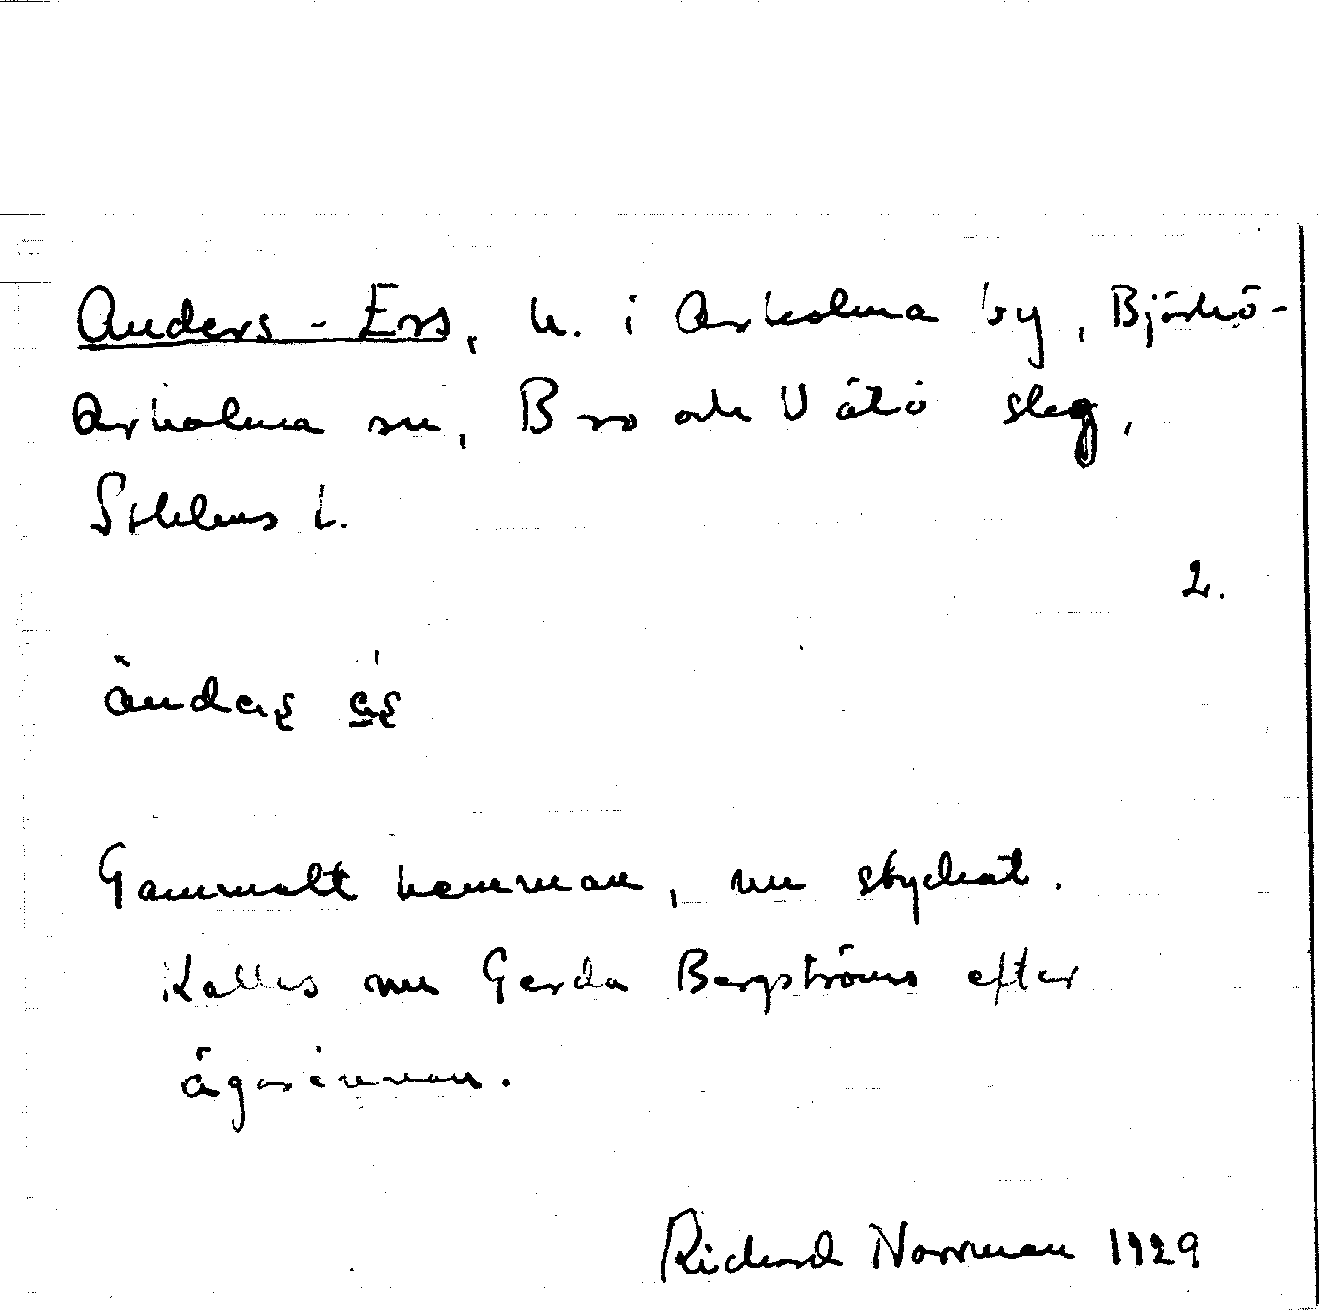 Anders-Ers, h. i Arholma by, Björkö-
Arholma sn, Bro och Vätö slag,
Sthlms l.
2.
Gammalt hemman, nu styckat.
Kallas nu Gerda Bergströms efter
ägarinnan.
Richard Norrman 1929